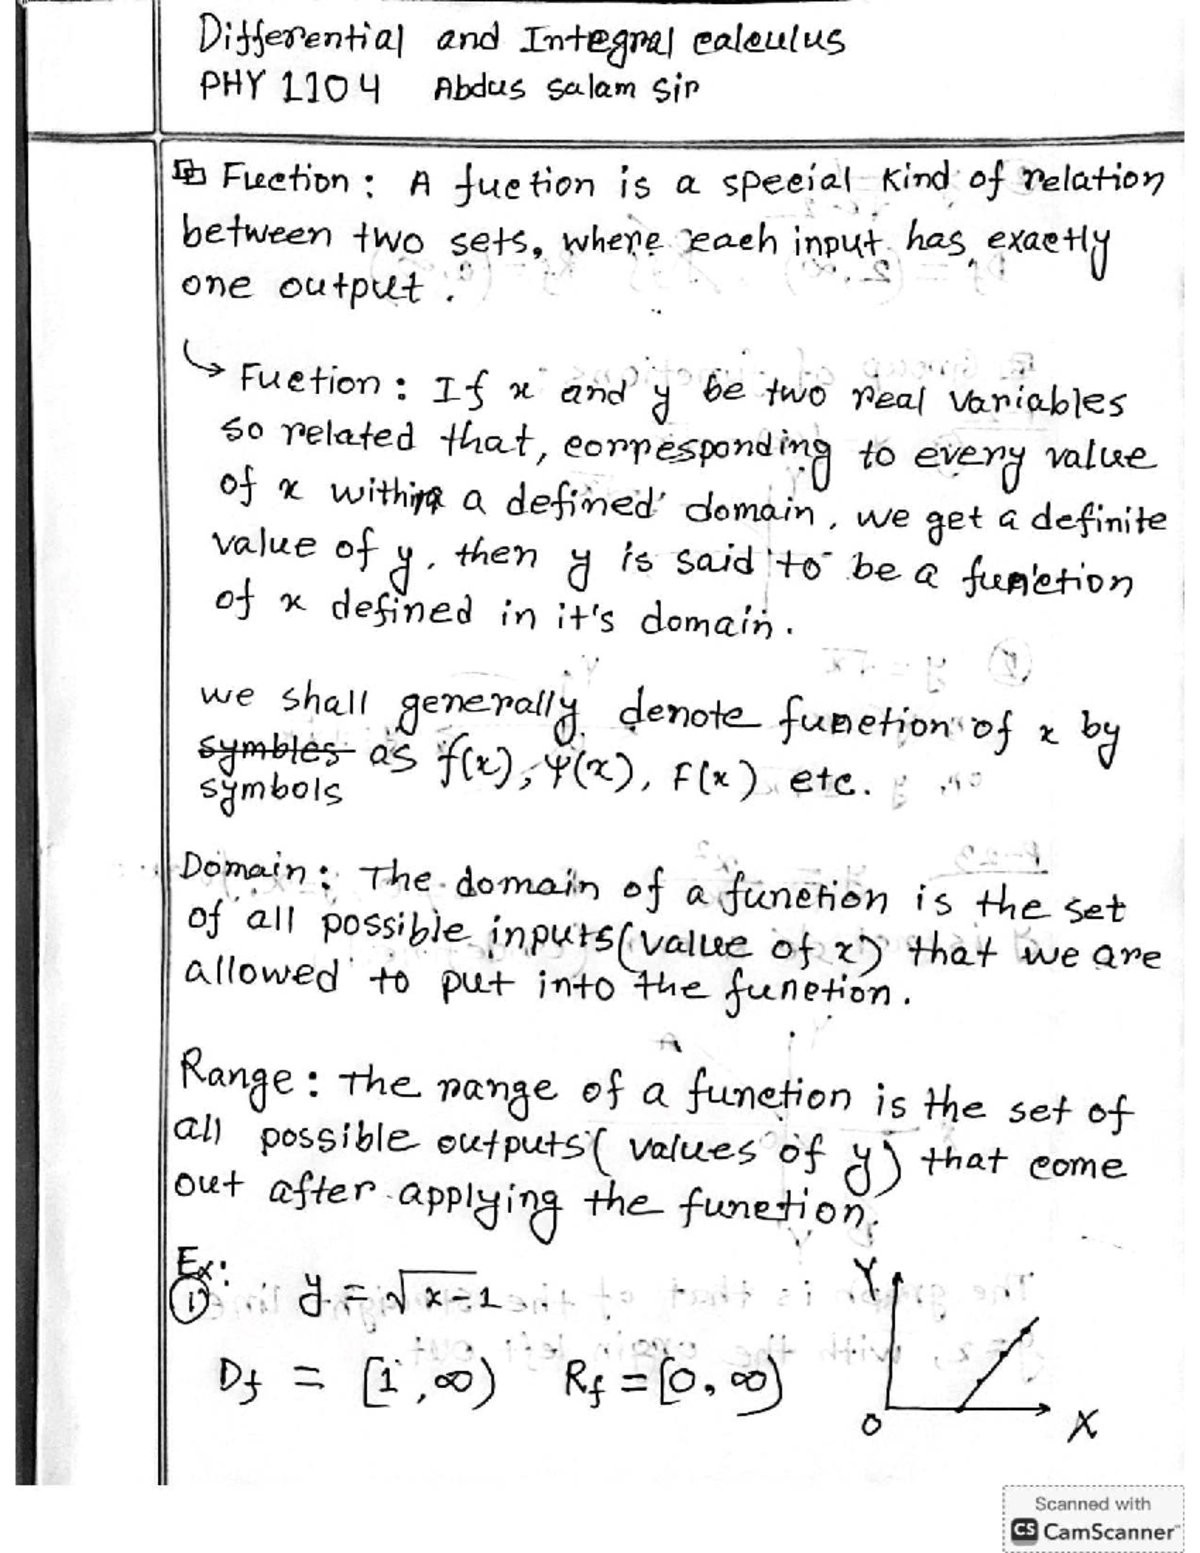 Differential and Integral calculus
PHY 1104 Abdus Salam Sir
Fuction : A fuction is a special kind of relation
between two sets, where each input has exactly
one output.
Fuction : If x and y be two real variables
so related that, corresponding to every value
of x within a defined domain, we get a definite
value of y, then y is said to be a function
of x defined in it's domain.
we shall generally denote function of x by
symbles as f(x), Ψ(x), F(x) etc.
symbols
Domain : The domain of a function is the set
of all possible inputs (value of x) that we are
allowed to put into the function.
Range : The range of a function is the set of
all possible outputs ( values of y) that come
out after applying the function.
Ex:
① y = √x-1
Y
Df = [1, ∞) Rf = [0, ∞)
O X
Scanned with
CS CamScanner